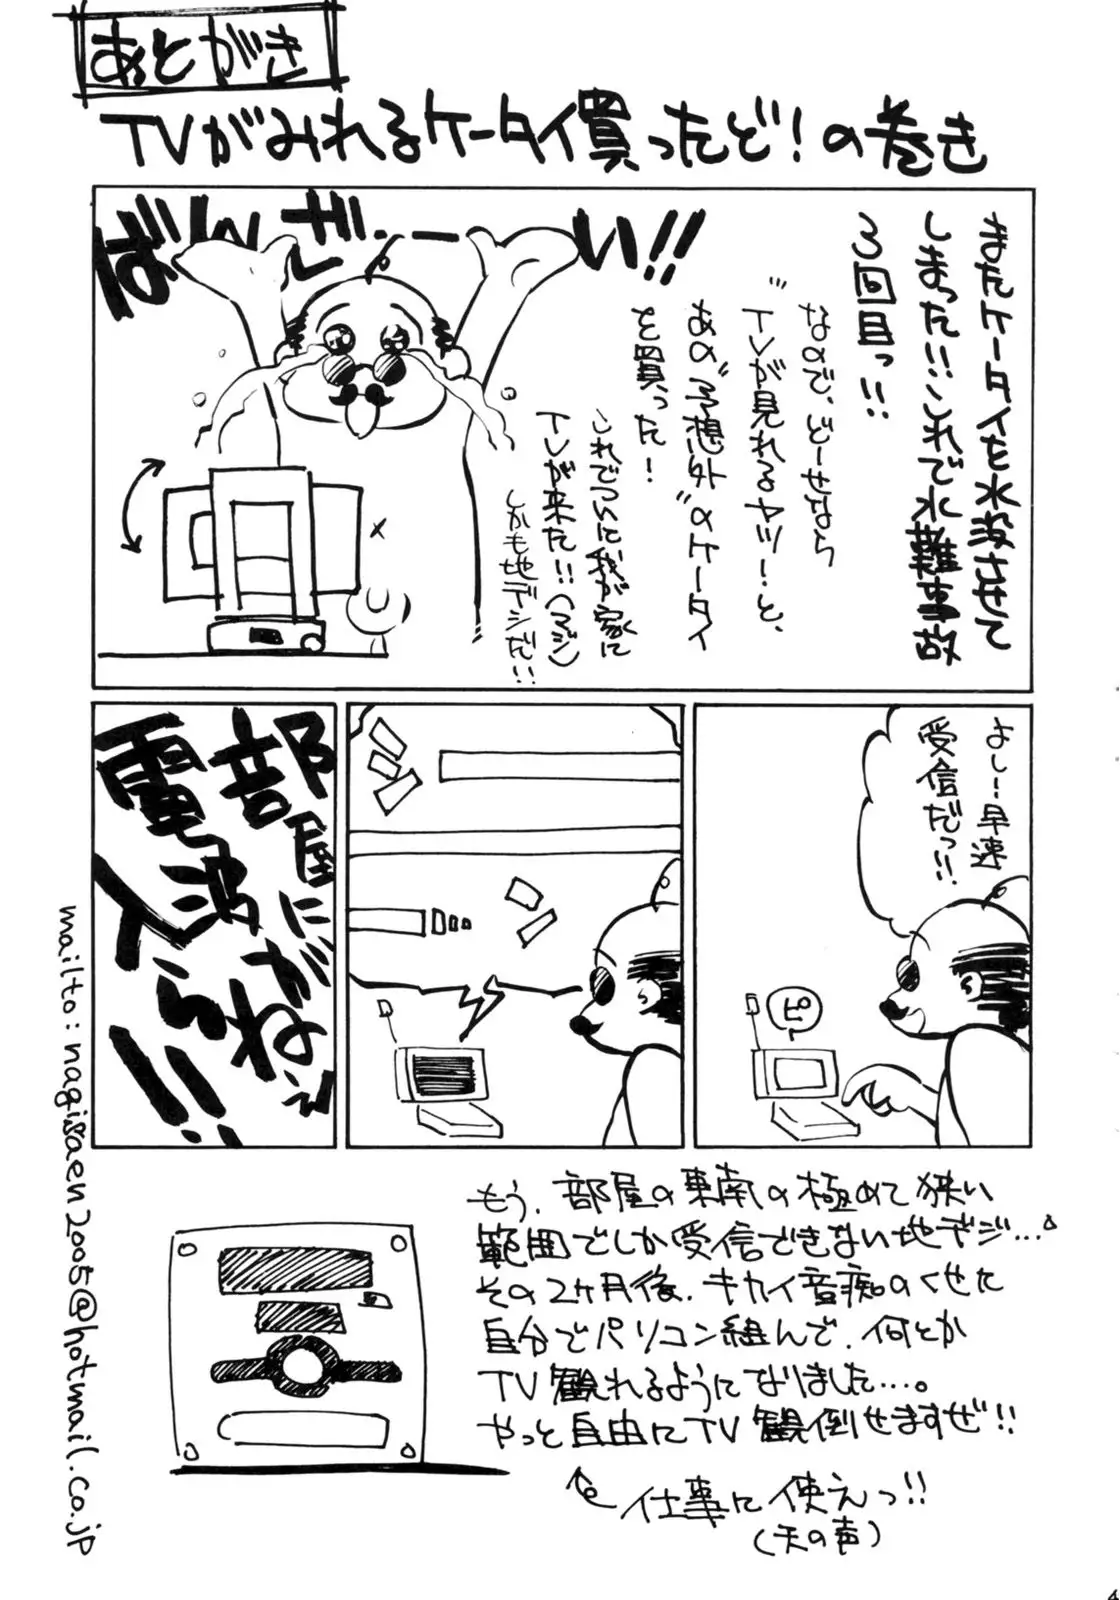 あとがき
TVがみれるケータイ買ったど!の巻き
またケータイを水没させて
しまった!!これで水難事故
3回目っ!!
なので、どーせなら
"TVが見れるヤツ!"と、
あの"予想外"のケータイ
を買った!
ばんざーい!!
これでついに我が家に
TVが来た!!(マジ)
しかも地デジだ!!
よし!早速
受信だっ!!
ピ
部屋に
電波が
入らねぇ!!
もう、部屋の東南の極めて狭い
範囲でしか受信できない地デジ…。
その2ヶ月後、キカイ音痴のくせた
自分でパソコン組んで、何とか
TV観れるようになりました…。
やっと自由にTV観倒せますぜ!!
仕事に使えっ!!
(天の声)
mailto:nagisaen2005@hotmail.co.jp
4